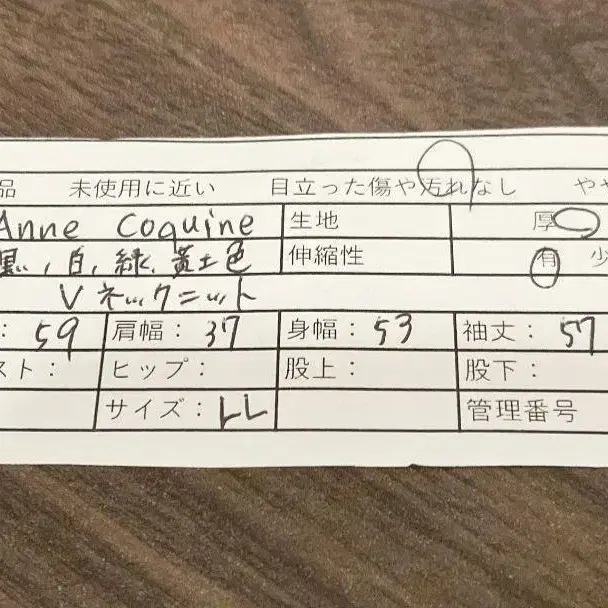 品 未使用に近い 目立った傷や汚れなし やや
Anne Coquine 生地 厚
黒,白,緑,黄土色 伸縮性 有 少
Vネックニット
: 59 肩幅: 37 身幅: 53 袖丈: 57
スト: ヒップ: 股上: 股下:
サイズ: LL 管理番号